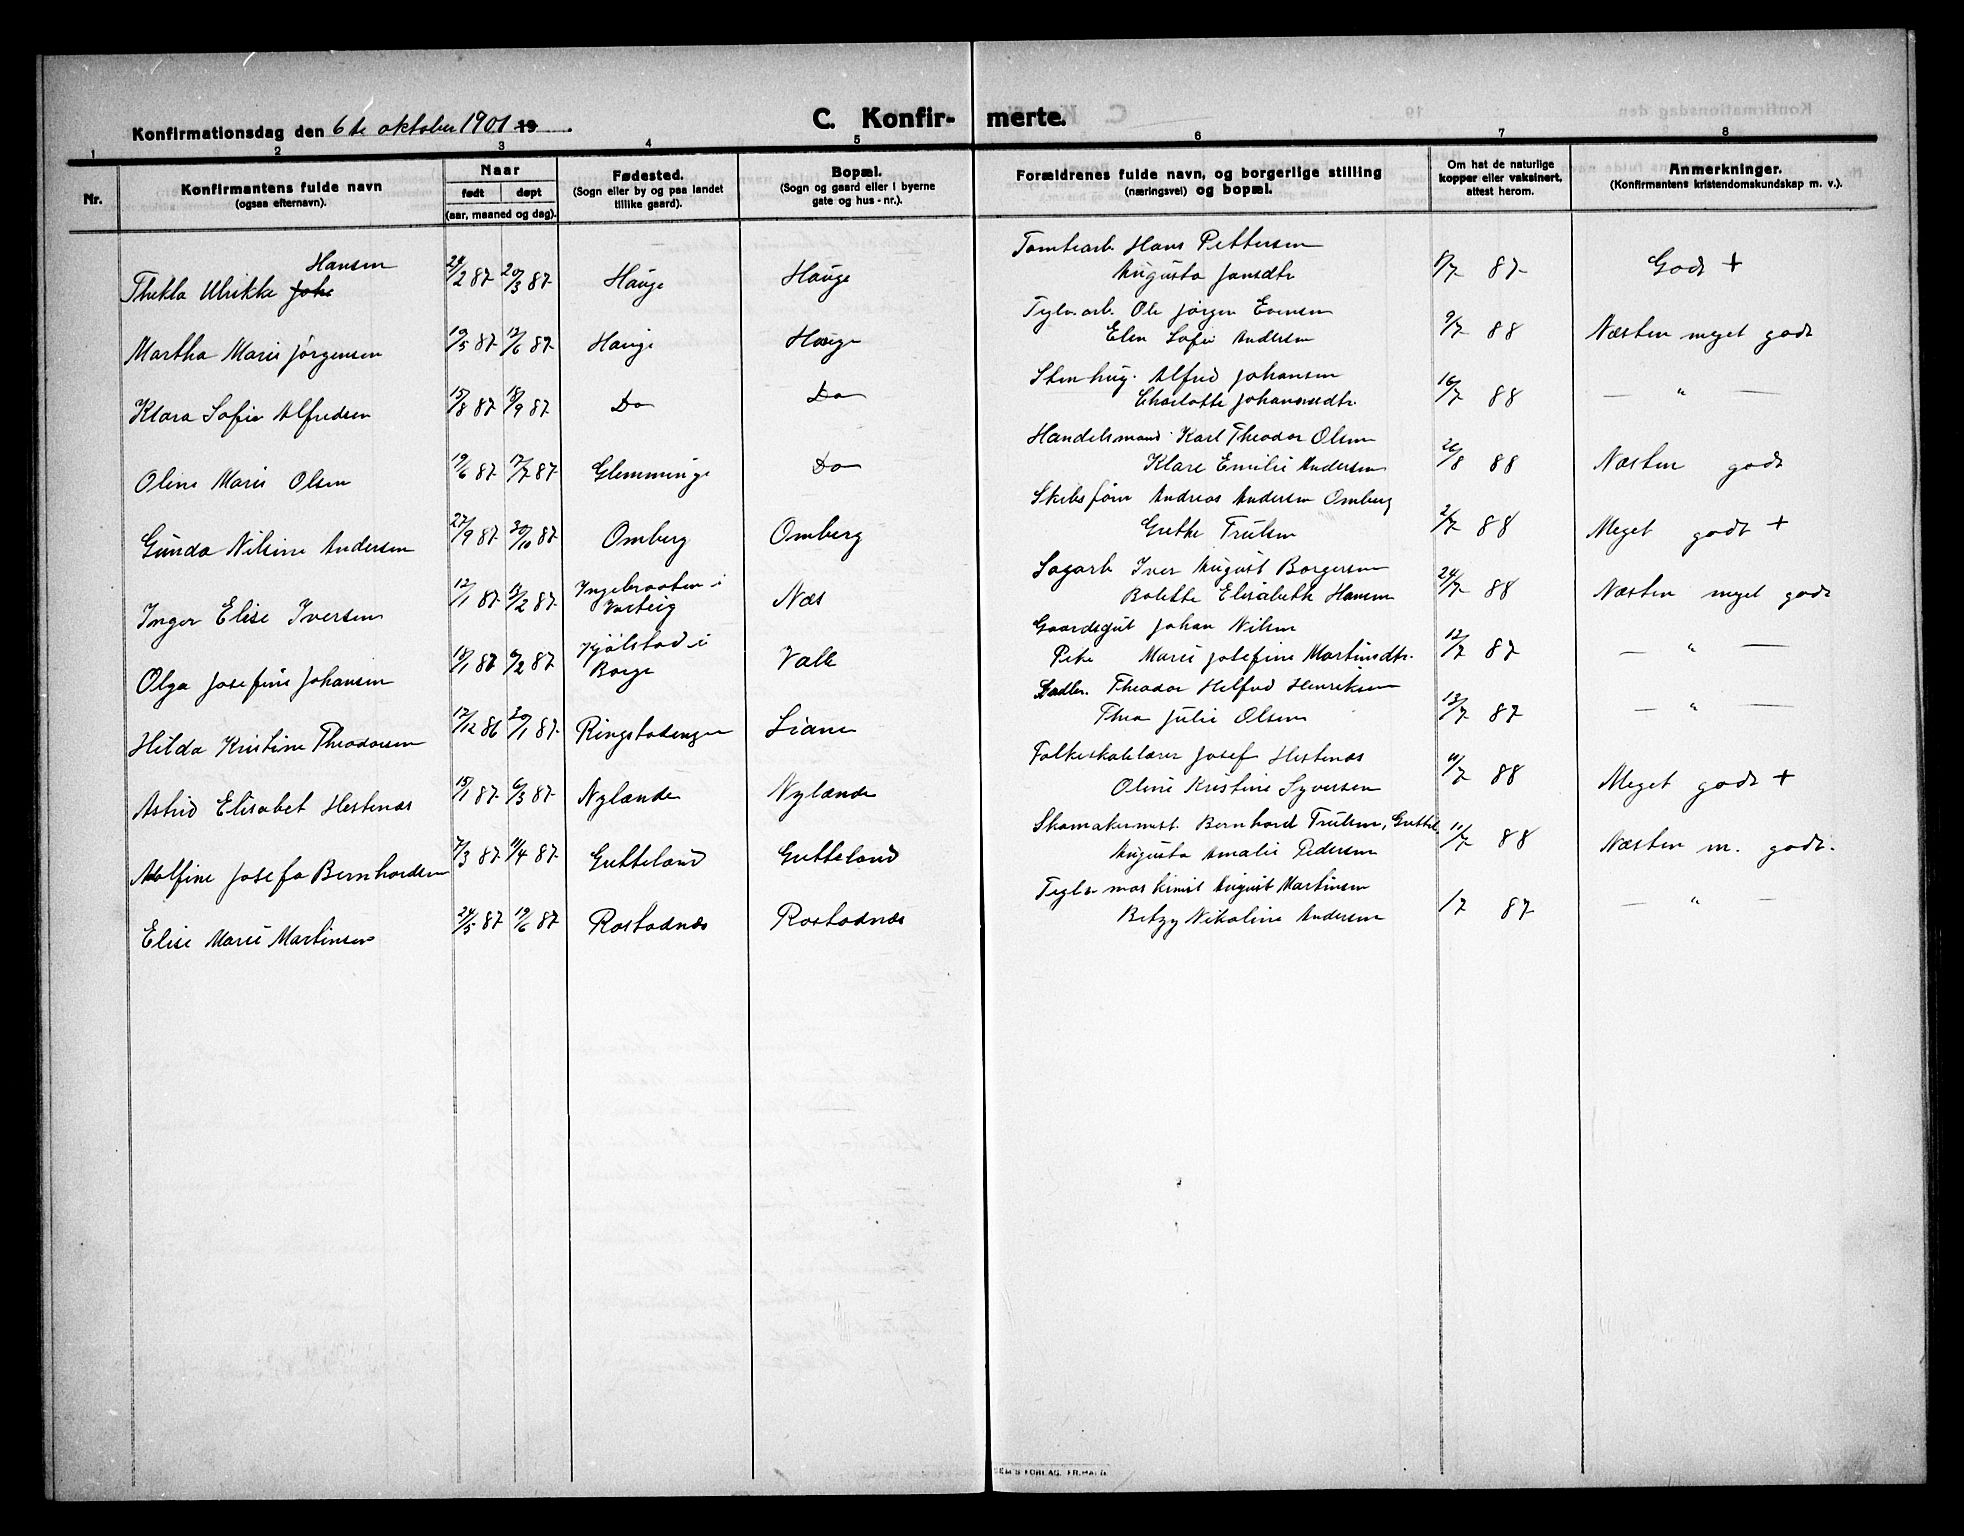 Konfirmationsdag den 6te oktober 1901 19
C. Konfir- merte.
1 2 3 4 5 6 7 8
Nr.
Konfirmantens fulde navn
(ogsaa efternavn).
Naar
født døpt
(aar, maaned og dag).
Fødested.
(Sogn eller by og paa landet
tillike gaard).
Bopæl.
(Sogn og gaard eller i byerne
gate og hus-nr.).
Forældrenes fulde navn, og borgerlige stilling
(næringsvei) og bopæl.
Om hat de naturlige
kopper eller vaksinert,
attest herom.
Anmerkninger.
(Konfirmantens kristendomskundskap m. v.).
Hansen
Thekla Ulrikke Joha 24/2 87 20/3 87 Hauge Hauge
Tomtearb. Hans Pettersen
Augusta Jansdtr 8/7 87 Godt +
Martha Marie Jørgensen 19/5 87 12/6 87 Hauge Hauge
Teglv. arb. Ole Jørgen Evensen
Elen Sofie Andersen 9/7 88 Næsten meget godt
Klara Sofie Alfredsen 15/8 87 18/9 87 Do Do
Stenhug. Alfred Johansen
Charlotte Johannesdtr. 16/7 88 — " —
Oline Marie Olsen 19/6 87 17/7 87 Glemminge Do
Handelsmand Karl Theodor Olsen
Klare Emilie Andersen 26/8 88 Næsten godt
Gunda Nilsine Andersen 27/9 87 30/10 87 Omberg Omberg
Skibsfører Andreas Andersen Omberg
Grethe Trulsen 2/7 88 Meget godt +
Inger Elise Iversen 12/1 87 13/2 87 Ingebraaten i
Varteig Næs
Sagarb Iver August Borgersen
Bolette Elisabeth Hansen 24/7 88 Næsten meget godt
Olga Josefine Johansen 18/1 87 6/2 87 Kjølstad i
Borge Valle
Gaardsgut Johan Nilsen
Pike Marie Josefine Martinsdtr. 12/7 87 — " —
Hilda Kristine Theodorsen 17/12 86 30/1 87 Ringstadengen Liane
Sadler. Theodor Helfred Henriksen
Thea Julie Olsen 13/7 87 — " —
Astrid Elisabet Hestenæs 15/1 87 6/3 87 Nylænde Nylænde
Folkeskolelærer Josef Hestenæs
Oline Kristine Syversen 11/7 88 Meget godt +
Adolfine Josefa Bernhardsen 7/3 87 11/4 87 Gutteland Gutteland
Skomakermest. Bernhard Trulsen, Guttel.
Augusta Amalie Pedersen 11/7 88 Næsten m. godt.
Elise Marie Martinsen 24/5 87 19/6 87 Rostadnæs Rostadnæs
Teglv. maskinist August Martinsen
Betzy Nikoline Andersen 17 87 — " —
SEM'S FORLAG, FR.HALD